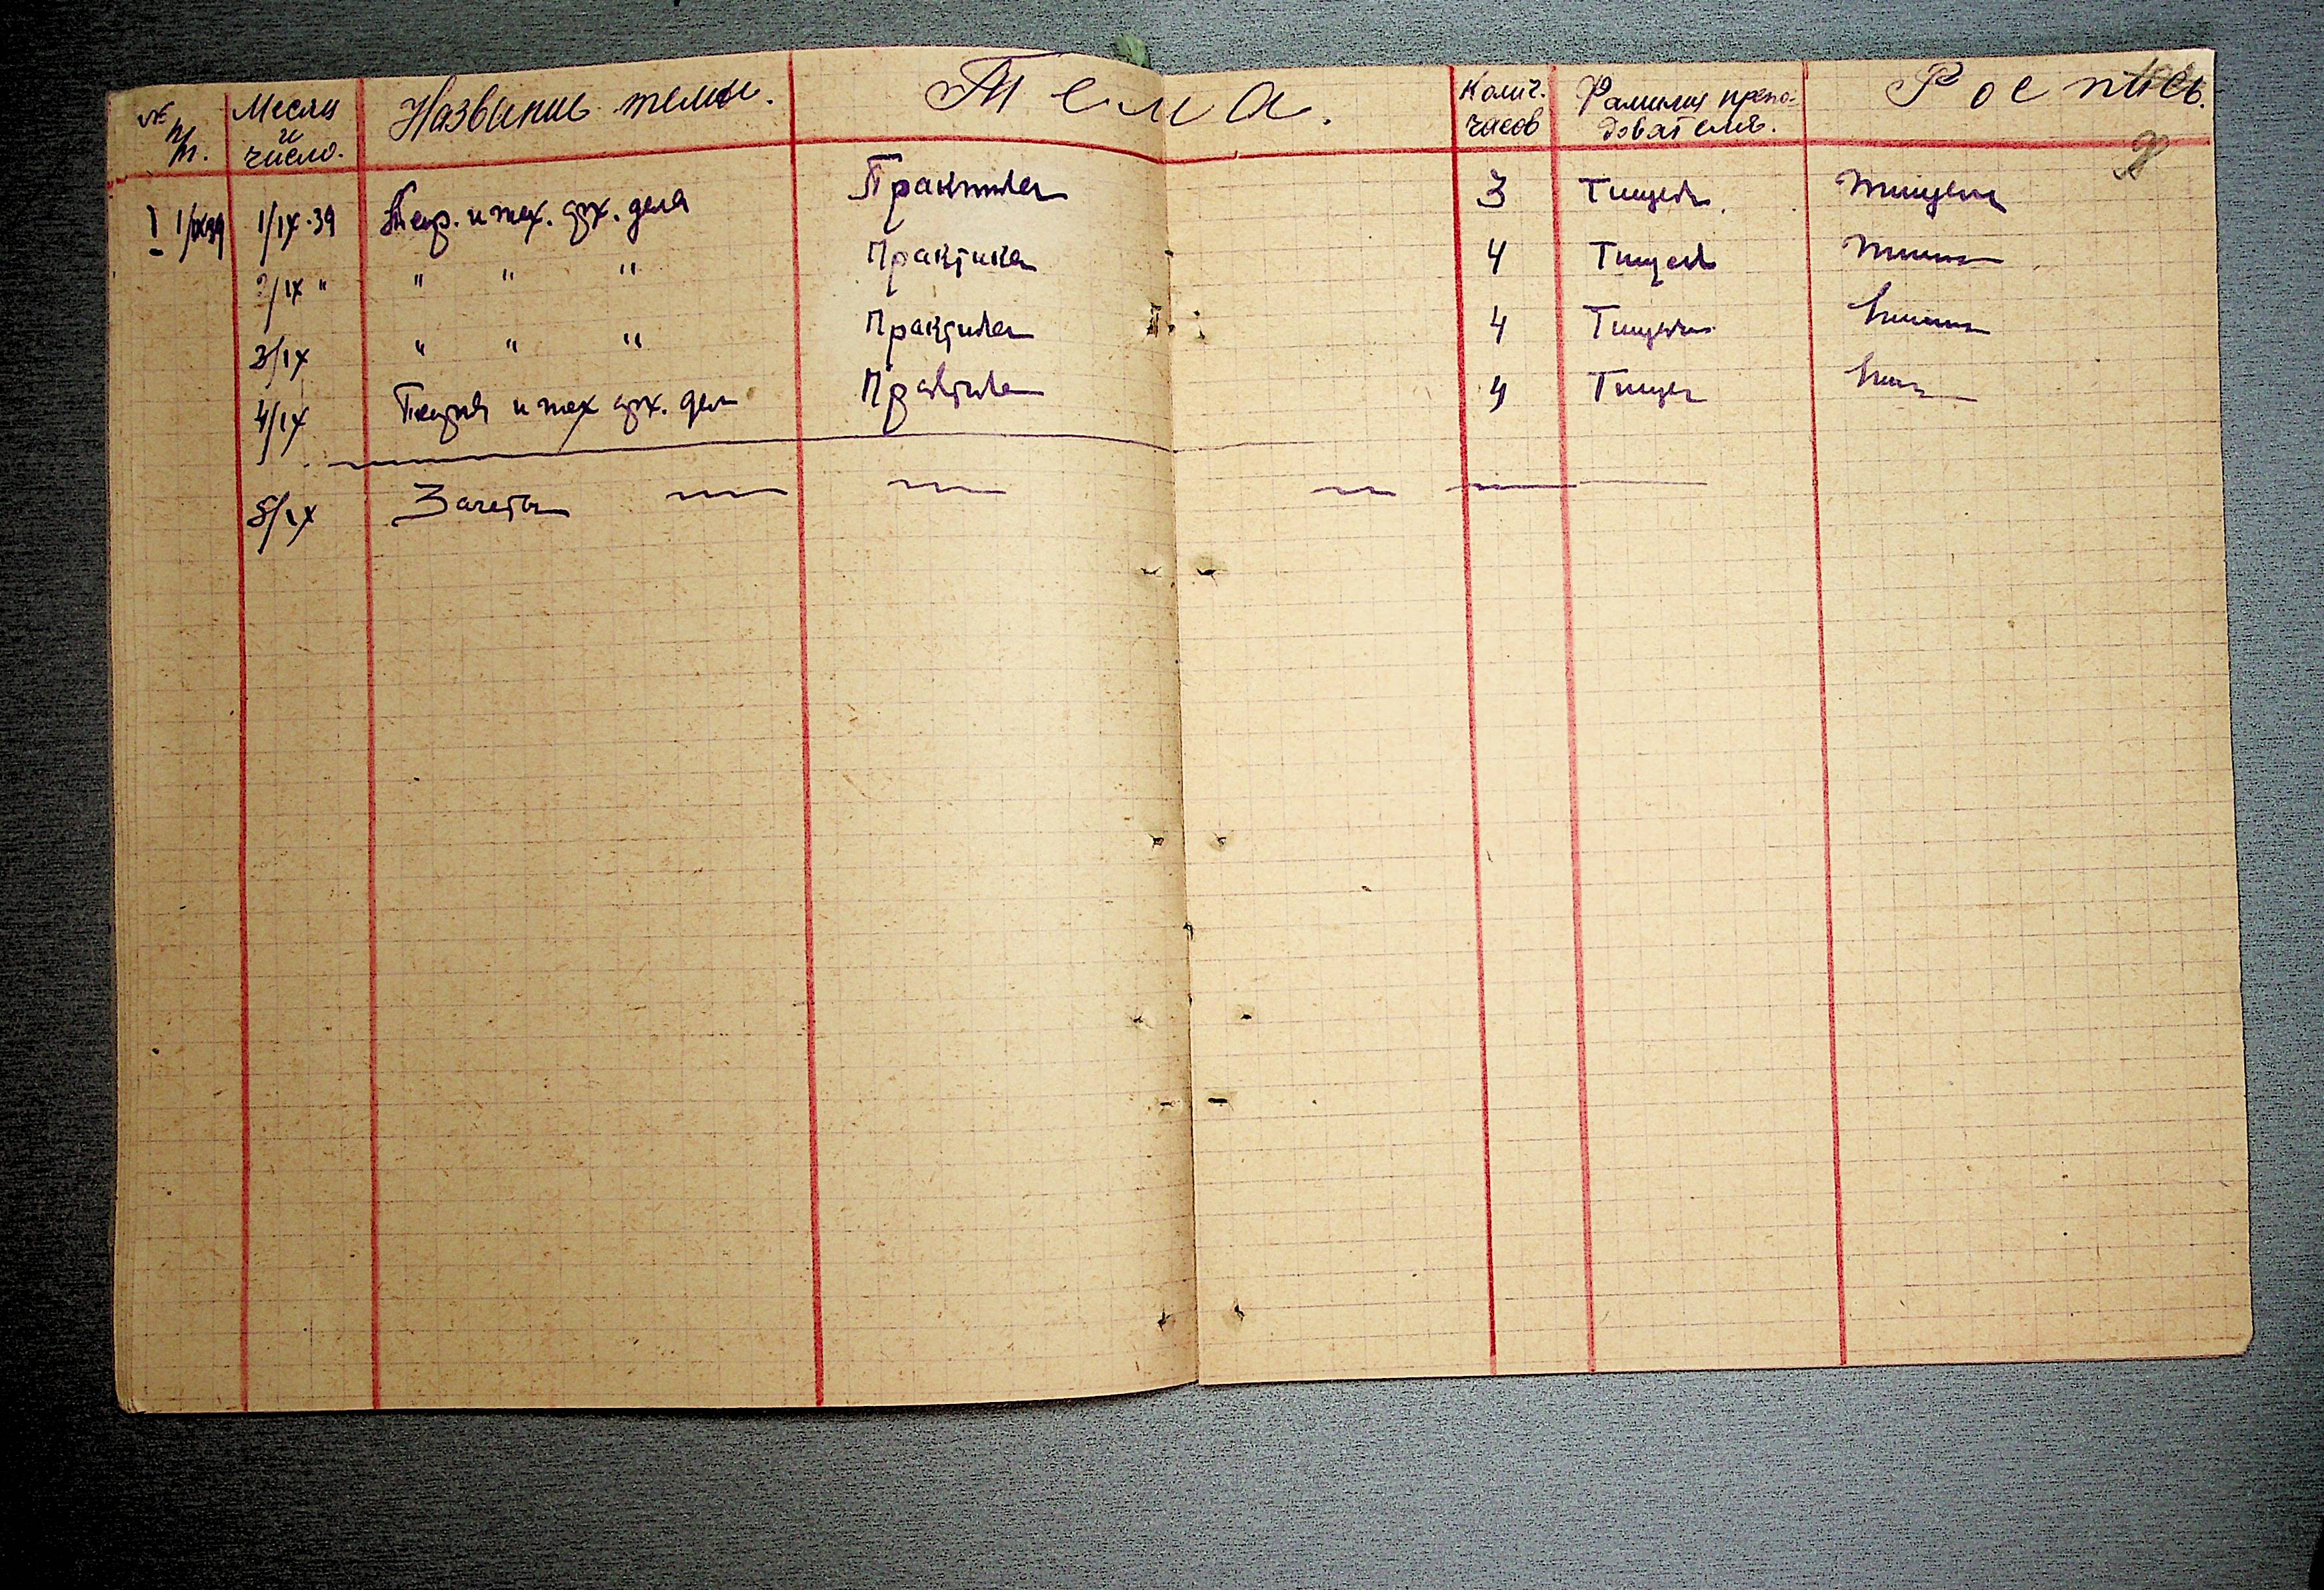 № п/п. Месяц и число. Название темы. Тема. Колич. часов Фамилия препо-дователя. Роспись.
1/IX39 1/IX-39 Теор. и тех. арх. дела Практика 3 Тищен
2/IX " " " " Практика 4 Тищен
3/IX " " " Практика 4 Тищен
4/IX Теория и тех арх. дел Практика 4 Тищен
5/IX Зачеты